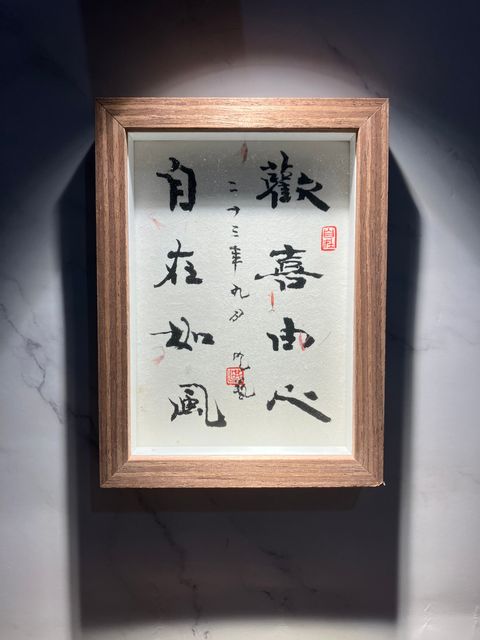 歡喜由心
自在如風
二十三年九月